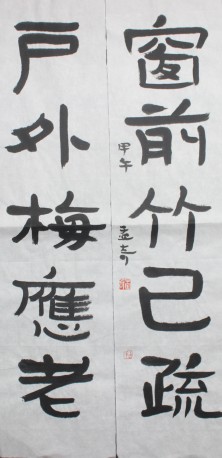 窗前竹已疏
甲午
戶外梅應老